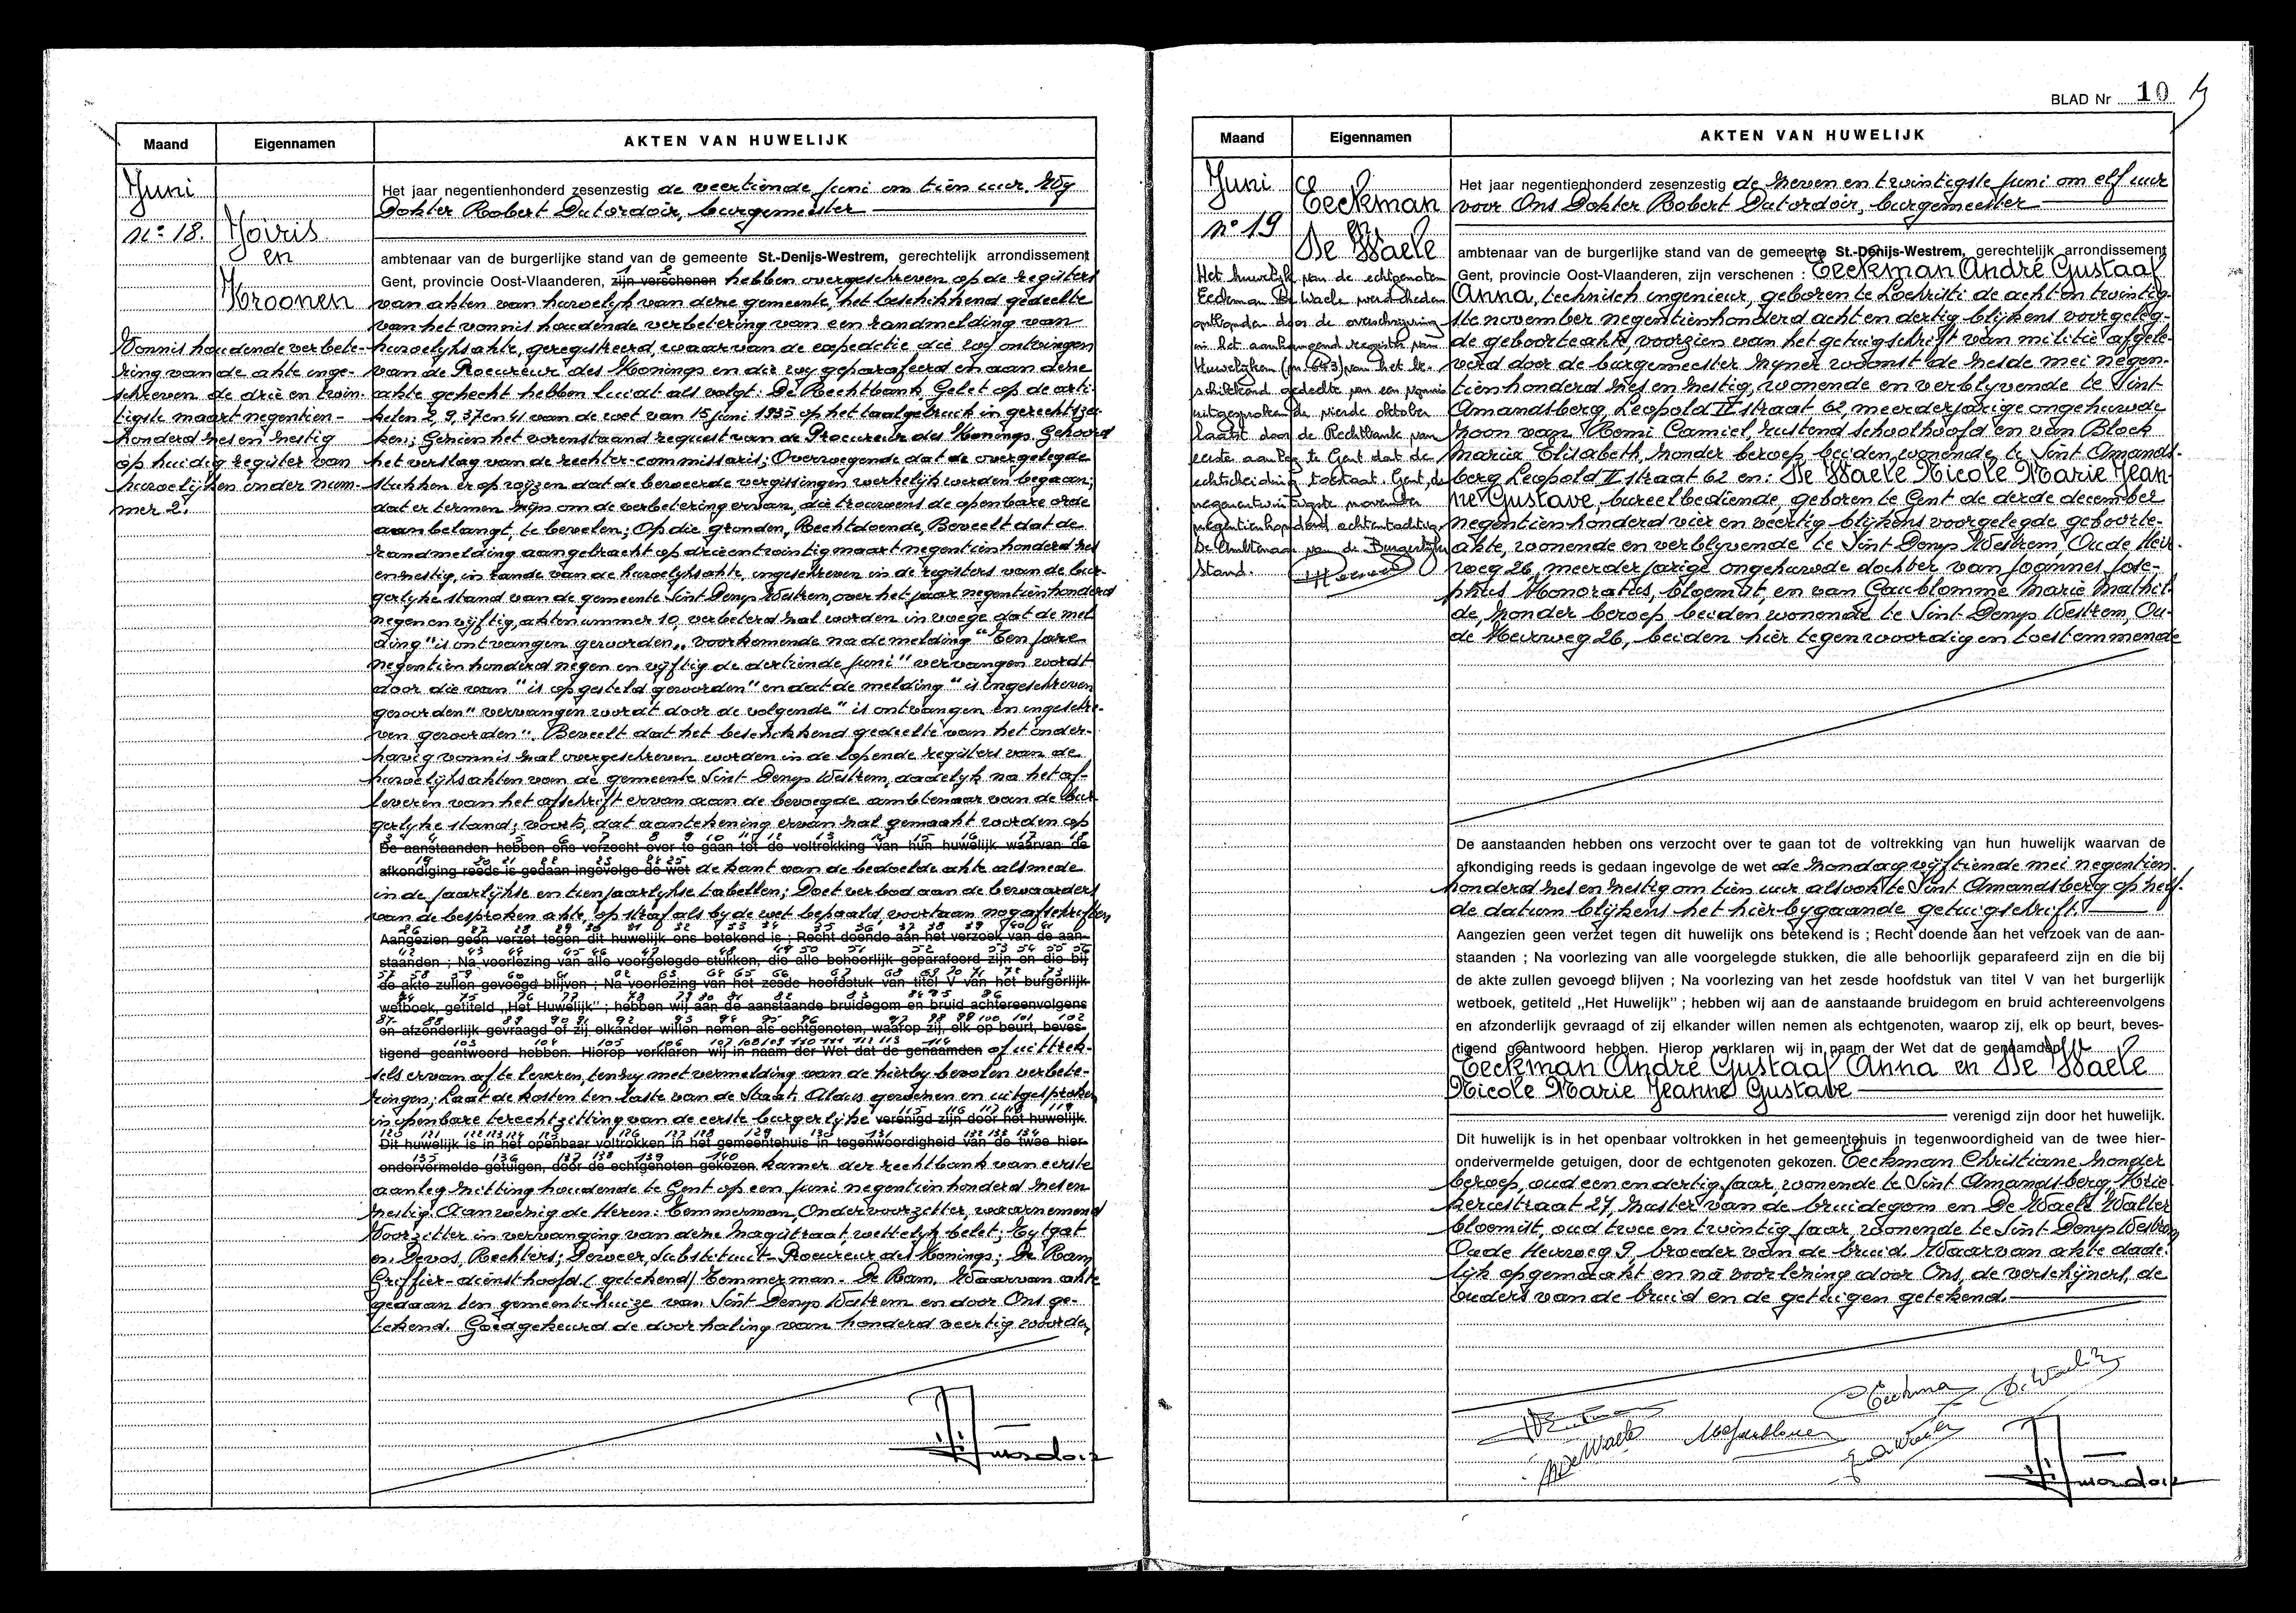 Maand
Eigennamen
AKTEN VAN HUWELIJK
Juni
nº 18.
Joiris
en
Kroonen
Vonnis houdende verbete-
ring van de akte inge-
schreven de drie en twin-
tigste maart negentien-
honderd zes en zestig
op huidig register van
huwelijken onder num-
mer 2.
Het jaar negentienhonderd zesenzestig de veertiende juni om tien uur. Wij
Dokter Robert Dutordoir, burgemeester
ambtenaar van de burgerlijke stand van de gemeente St.-Denijs-Westrem, gerechtelijk arrondissement
Gent, provincie Oost-Vlaanderen, zijn verschenen hebben overgeschreven op de registers
van akten van huwelijk van deze gemeente, het beschikkend gedeelte
van het vonnis houdende verbetering van een randmelding van
huwelijksakte, geregistreerd, waarvan de expeditie die wij ontvingen
van de Procureur des Konings en die wij geparafeerd en aan deze
akte gehecht hebben luidt als volgt: De Rechtbank, Gelet op de arti-
kelen 2, 9, 37 en 41 van de wet van 15 juni 1935 op het taalgebruik in gerechtsza-
ken; Gezien het vorenstaand request van de Procureur des Konings. Gehoord
het verslag van de rechter-commissaris; Overwegende dat de overgelegde
stukken er op wijzen dat de beweerde vergissingen werkelijk werden begaan;
dat er termen zijn om de verbetering ervan, die trouwens de openbare orde
aanbelangt, te bevelen; Op die gronden, Rechtdoende, Beveelt dat de
randmelding aangebracht op drieentwintig maart negentienhonderd zes
en zestig, in rande van de huwelijksakte, ingeschreven in de registers van de bur-
gerlijke stand van de gemeente Sint Denijs Westrem, over het jaar negentienhonderd
negen en vijftig, aktenummer 10, verbeterd zal worden in voege dat de mel-
ding "is ontvangen geworden„ voorkomende na de melding "Een jare
negentienhonderd negen en vijftig de dertiende juni" vervangen wordt
door die van "is opgesteld geworden" en dat de melding "is ingeschreven
geworden" vervangen wordt door de volgende "is ontvangen en ingeschre-
ven geworden". Beveelt dat het beschikkend gedeelte van het onder-
havig vonnis zal overgeschreven worden in de lopende registers van de
huwelijksakten van de gemeente Sint Denijs Westrem, dadelijk na het af-
leveren van het afschrift ervan aan de bevoegde ambtenaar van de bur-
gerlijke stand; voorts, dat aantekening ervan zal gemaakt worden op
De aanstaanden hebben ons verzocht over te gaan tot de voltrekking van hun huwelijk waarvan de
afkondiging reeds is gedaan ingevolge de wet de kant van de bedoelde akte alsmede
in de jaarlijkse en tienjaarlijkse tabellen; Doet verbod aan de bewaarders
van de besproken akte, op straf als bij de wet bepaald, voortaan nog afschriften
Aangezien geen verzet tegen dit huwelijk ons betekend is ; Recht doende aan het verzoek van de aan-
staanden ; Na voorlezing van alle voorgelegde stukken, die alle behoorlijk geparafeerd zijn en die bij
de akte zullen gevoegd blijven ; Na voorlezing van het zesde hoofdstuk van titel V van het burgerlijk
wetboek, getiteld „Het Huwelijk" ; hebben wij aan de aanstaande bruidegom en bruid achtereenvolgens
en afzonderlijk gevraagd of zij elkander willen nemen als echtgenoten, waarop zij, elk op beurt, beves-
tigend geantwoord hebben. Hierop verklaren wij in naam der Wet dat de genaamden of uittrek-
sels ervan af te leveren, tenzij met vermelding van de hierbij bevolen verbete-
ringen; Laat de kosten ten laste van de Staat. Aldus gewezen en uitgesproken
in openbare terechtzitting van de eerste burgerlijke verenigd zijn door het huwelijk.
Dit huwelijk is in het openbaar voltrokken in het gemeentehuis in tegenwoordigheid van de twee hier-
ondervermelde getuigen, door de echtgenoten gekozen. kamer der rechtbank van eerste
aanleg zitting houdende te Gent op een juni negentienhonderd zes en
zestig. Aanwezig de Heren: Temmerman, Ondervoorzitter, waarnemend
Voorzitter in vervanging van deze Magistraat, wettelijk belet; Eytgat
en Devos, Rechters; Derweer, Substituut-Procureur des Konings; De Ram
Griffier-diensthoofd (getekend) Temmerman - De Ram. Waarvan akte
gedaan ten gemeentehuize van Sint Denijs Westrem en door Ons ge-
tekend. Goedgekeurd de doorhaling van honderd veertig woorden
BLAD Nr 10
Maand
Eigennamen
AKTEN VAN HUWELIJK
Juni
nº 19
Eeckman
en
De Waele
Het huwelijk van de echtgenoten
Eeckman De Waele werd heden
ontbonden door de overschrijving
in het aanhangend register van
Huwelijken (nr 603) van het be-
schikkend gedeelte van een vonnis
uitgesproken de vierde oktober
laatst door de Rechtbank van
eerste aanleg te Gent dat de
echtscheiding toestaat. Gent, de
negenentwintigste november
negentienhonderd achtentachtig.
De Ambtenaar van de Burgerlijke
Stand.
Het jaar negentienhonderd zesenzestig de zeven en twintigste juni om elf uur
voor Ons Dokter Robert Dutordoir, burgemeester
ambtenaar van de burgerlijke stand van de gemeente St.-Denijs-Westrem, gerechtelijk arrondissement
Gent, provincie Oost-Vlaanderen, zijn verschenen : Eeckman André Gustaaf
Anna, technisch ingenieur, geboren te Lochristi de acht en twintig-
ste november negentienhonderd acht en dertig blijkens voorgeleg-
de geboorteakte, voorzien van het getuigschrift van militie afgele-
verd door de burgemeester zijner woonst de zesde mei negen-
tienhonderd zes en zestig, wonende en verblijvende te Sint
Amandsberg, Leopold II straat 62, meerderjarige ongehuwde
zoon van Remi Camiel, rustend schoolhoofd en van Block
Maria Elisabeth, zonder beroep beiden wonende te Sint Amands-
berg Leopold II straat 62 en: De Waele Nicole Marie Jean-
ne Gustave, bureelbediende, geboren te Gent de derde december
negentienhonderd vier en veertig blijkens voorgelegde geboorte-
akte, wonende en verblijvende te Sint Denijs Westrem, Oude Heir-
weg 26, meerderjarige ongehuwde dochter van Joannes Jose-
phus Honoratus, bloemist, en van Caublomme Marie Mathil-
de, zonder beroep beiden wonende te Sint Denijs Westrem, Ou-
de Heirweg 26, beiden hier tegenwoordig en toestemmende
De aanstaanden hebben ons verzocht over te gaan tot de voltrekking van hun huwelijk waarvan de
afkondiging reeds is gedaan ingevolge de wet de zondag vijftiende mei negentien-
honderd zes en zestig om tien uur alsook te Sint Amandsberg op zelf-
de datum blijkens het hierbijgaande getuigschrift.
Aangezien geen verzet tegen dit huwelijk ons betekend is ; Recht doende aan het verzoek van de aan-
staanden ; Na voorlezing van alle voorgelegde stukken, die alle behoorlijk geparafeerd zijn en die bij
de akte zullen gevoegd blijven ; Na voorlezing van het zesde hoofdstuk van titel V van het burgerlijk
wetboek, getiteld „Het Huwelijk" ; hebben wij aan de aanstaande bruidegom en bruid achtereenvolgens
en afzonderlijk gevraagd of zij elkander willen nemen als echtgenoten, waarop zij, elk op beurt, beves-
tigend geantwoord hebben. Hierop verklaren wij in naam der Wet dat de genaamden
Eeckman André Gustaaf Anna en De Waele
Nicole Marie Jeanne Gustave
verenigd zijn door het huwelijk.
Dit huwelijk is in het openbaar voltrokken in het gemeentehuis in tegenwoordigheid van de twee hier-
ondervermelde getuigen, door de echtgenoten gekozen. Eeckman Christiane zonder
beroep, oud een en dertig jaar, wonende te Sint Amandsberg,
straat 27, zuster van de bruidegom en De Waele Walter
bloemist, oud twee en twintig jaar, wonende te Sint Denijs Westrem
Oude Heirweg 9, broeder van de bruid. Waarvan akte dade-
lijk opgemaakt en na voorlezing door Ons, de verschijners, de
ouders van de bruid en de getuigen getekend.